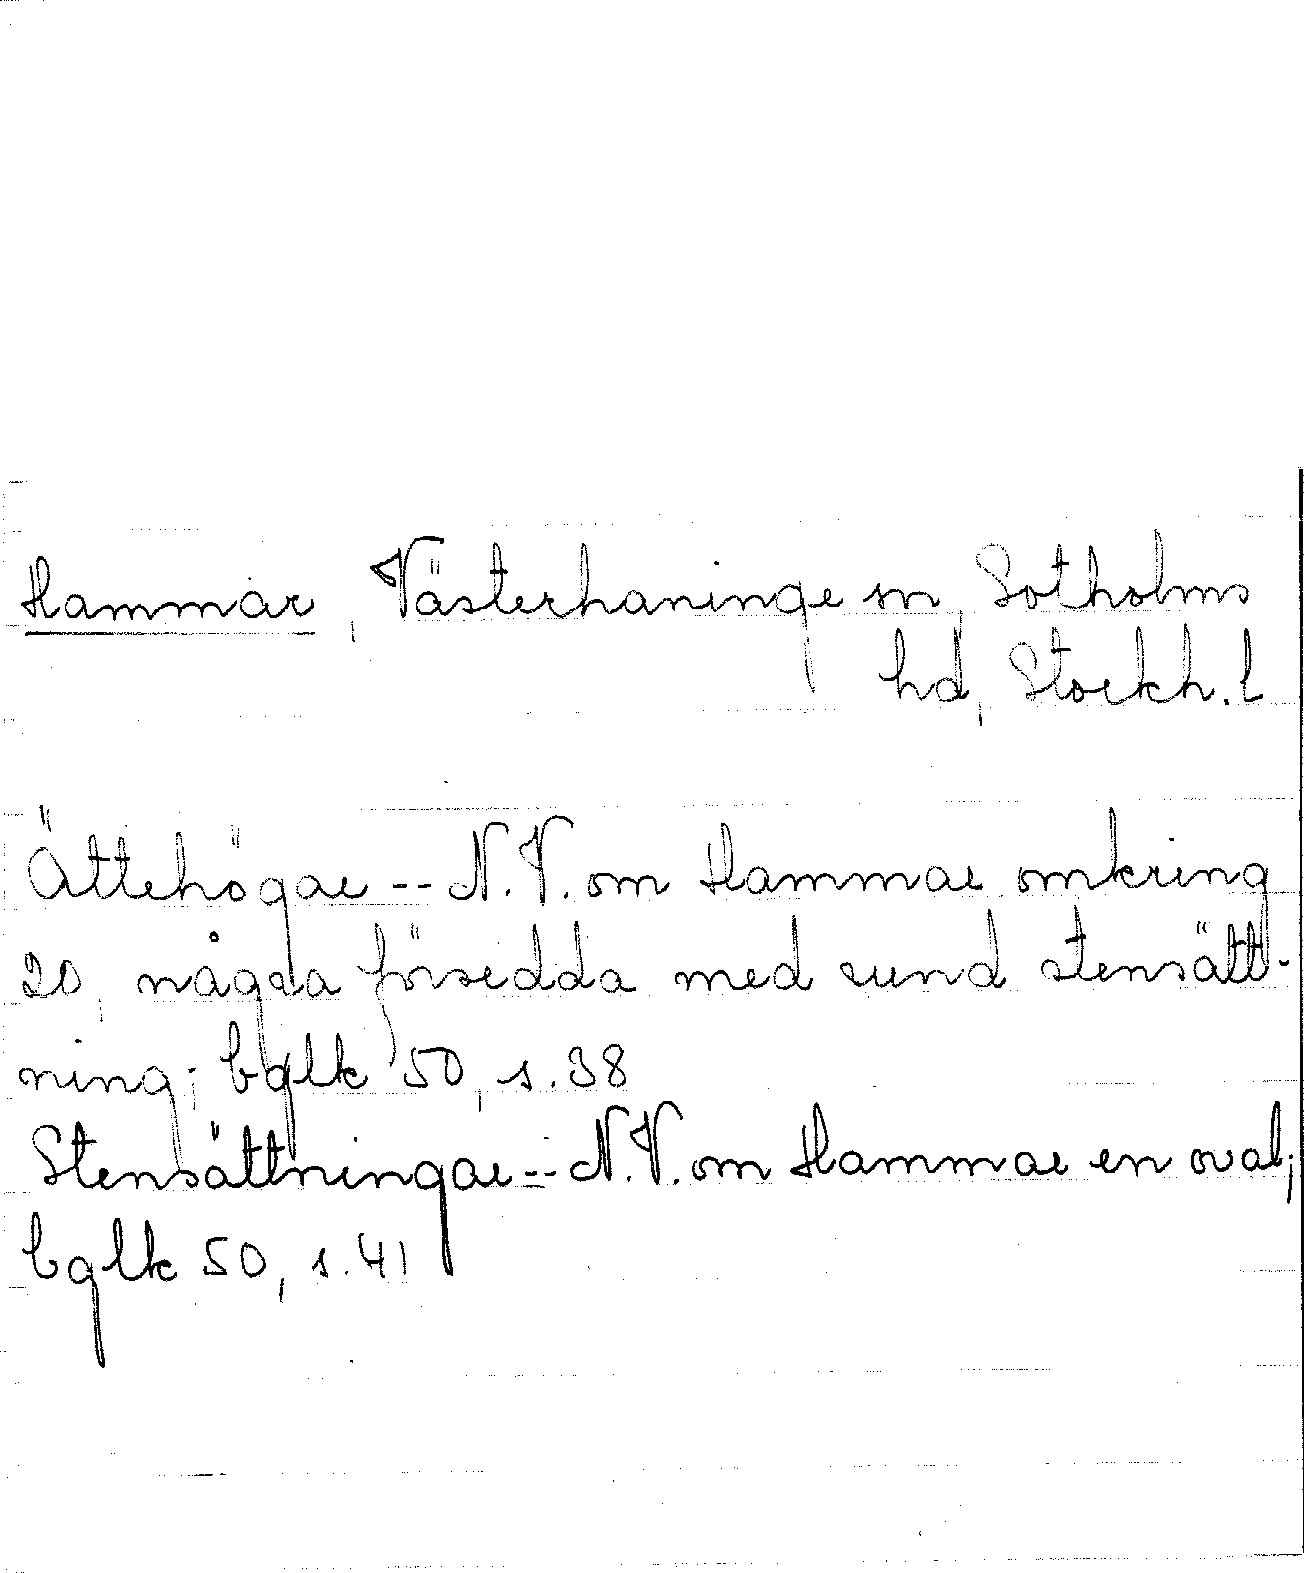 Hammar, Västerhaninge sn, Sotholms
hd, Stockh. l
Ättehögar -- N.V. om Hammar omkring
20, några försedda med rund stensätt-
ning; bglk 50, s. 38
Stensättningar -- N.V. om Hammar en oval;
bglk 50, s. 41